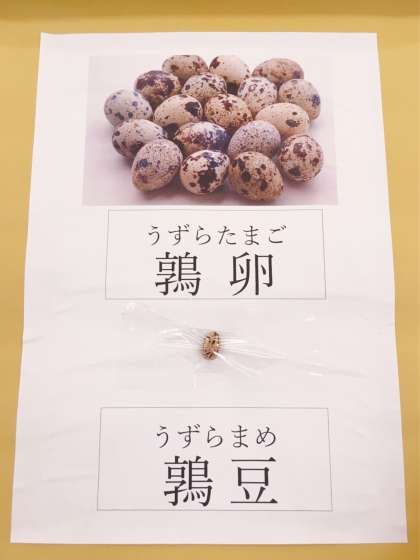 うずらたまご
鶉 卵
うずらまめ
鶉 豆